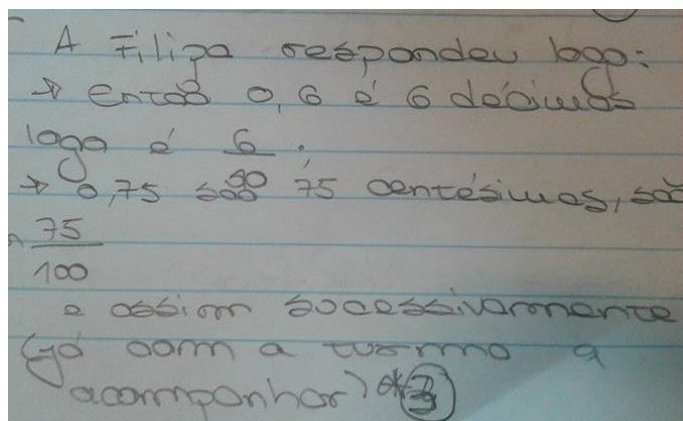 A Filipa respondeu logo:
→ então 0,6 é 6 décimas
logo é 6/10.
→ 0,75 são 75 centésimas, são
75/100
e assim sucessivamente
(já com a turma a
acompanhar) * 3